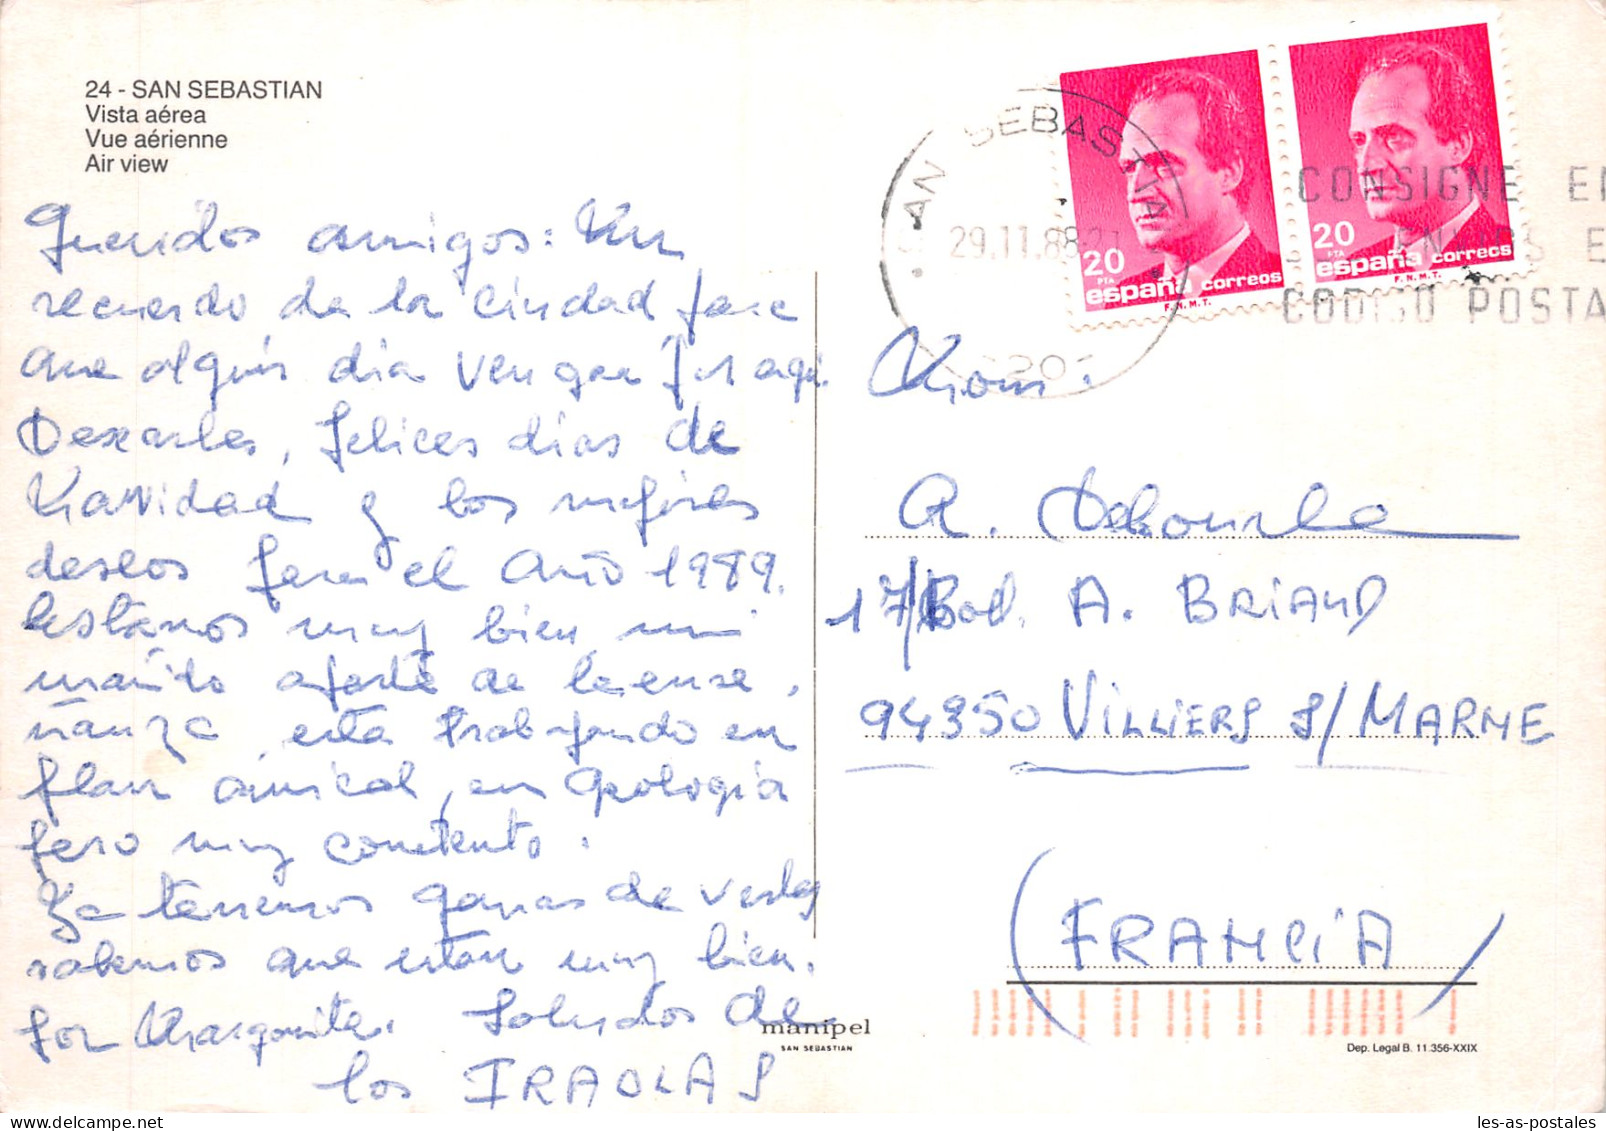 24 - SAN SEBASTIAN
Vista aérea
Vue aérienne
Air view
Queridos amigos: Un
recuerdo de la ciudad para
que algún día vengan por aquí.
Desearles, felices dias de
Navidad y los mejores
deseos para el año 1989.
Estamos muy bien, mi
marido aparte de la ense,
ñanza, esta trabajando en
plan amical, en Geologia
pero muy contento.
Ya tenemos ganas de verles
sabemos que estan muy bien.
por Margarita. Saludos de
los IRAOLAS
SAN SEBASTIA
29.11.88
20 PTA
españa correos
F.N.M.T.
20 PTA
españa correos
F.N.M.T.
CONSIGNE EN
ENVIOS E
CODIGO POSTA
Mons:
A.
17 Bod. A. BRIAND
94350 VILLIERS S/ MARNE
(FRANCIA)
manipel
SAN SEBASTIAN
Dep. Legal B. 11.356-XXIX
les-as-postales